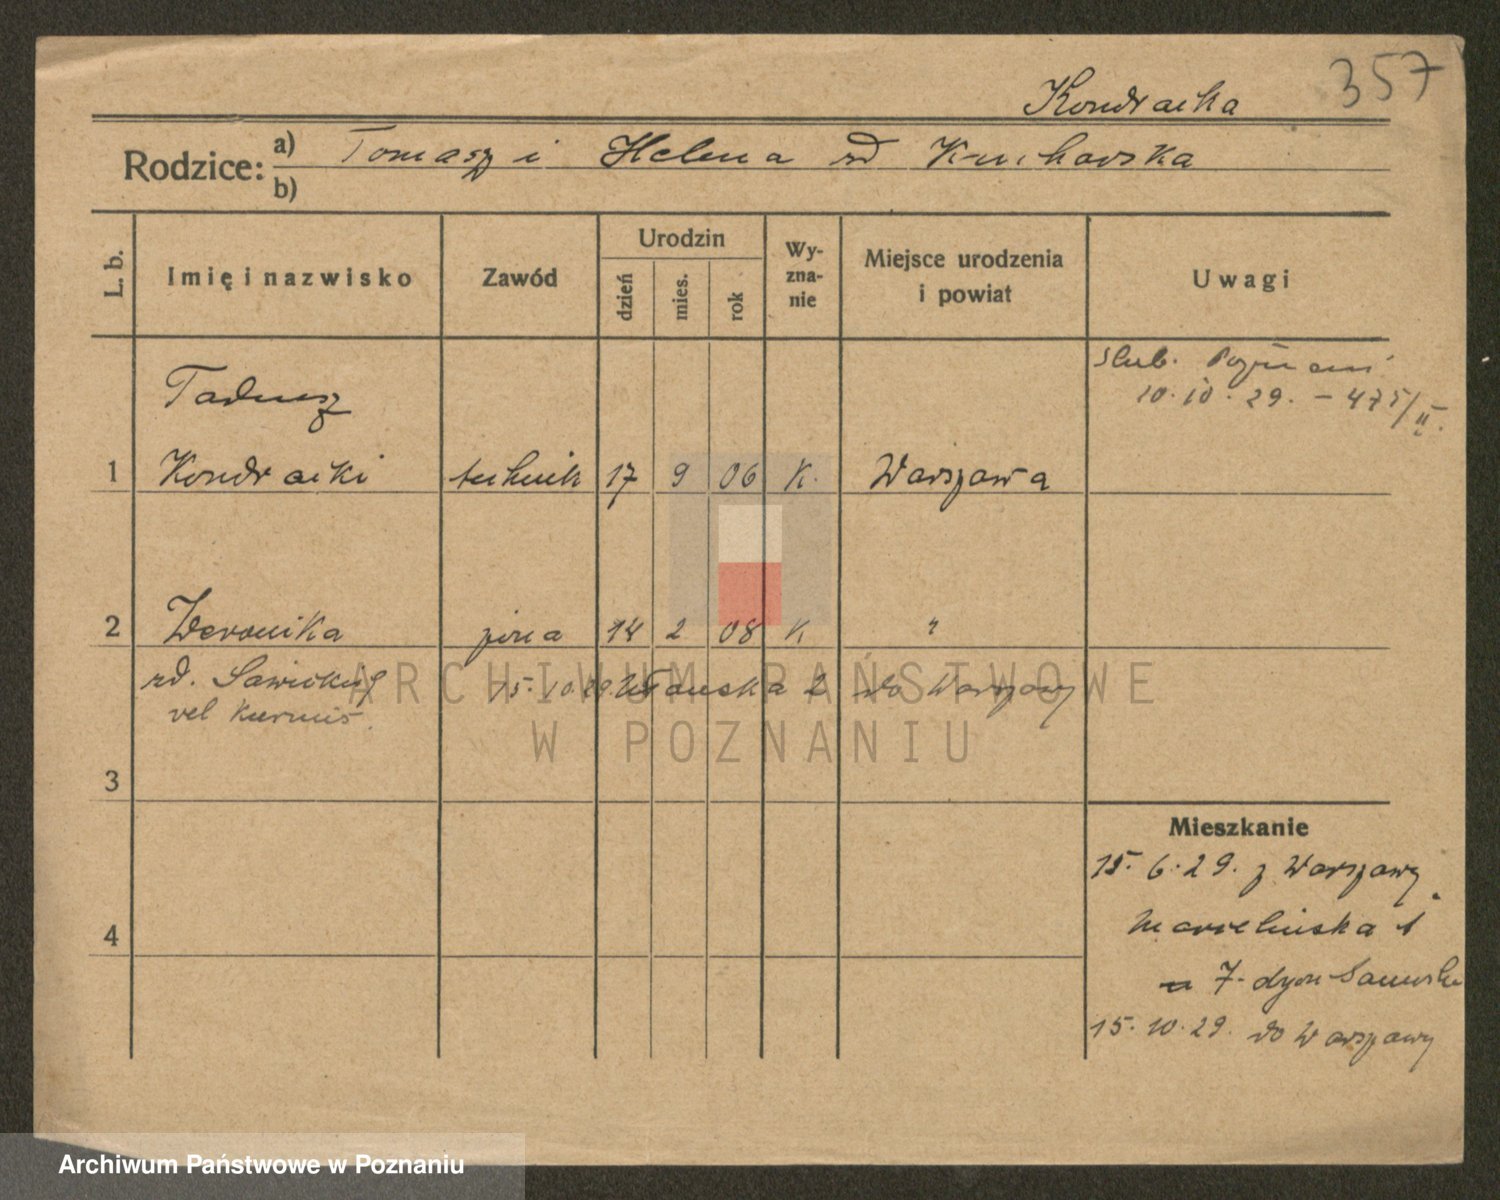 357
Kondracka
Rodzice: a) Tomasz i Helena rd Kucharska
b)
L. b. Imię i nazwisko Zawód Urodzin dzień mies. rok Wyznanie Miejsce urodzenia i powiat Uwagi
ślub. Poznań
10.10.29. - 475/II.
Tadeusz
1 Kondracki technik 17 9 06 K. Warszawa
2 Weronika żona 14 2 08 K "
rd. Sawickij 15.10.29. Ułańska 2 do Warszawy
vel
ARCHIWUM PAŃSTWOWE
W POZNANIU
3
4
Mieszkanie
15.6.29. z Warszawy
Marcelińska 1
7-dyon
15.10.29. do Warszawy
Archiwum Państwowe w Poznaniu